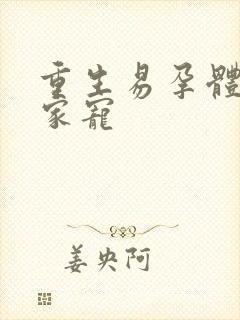 重生易孕體
家寵
姜央阿